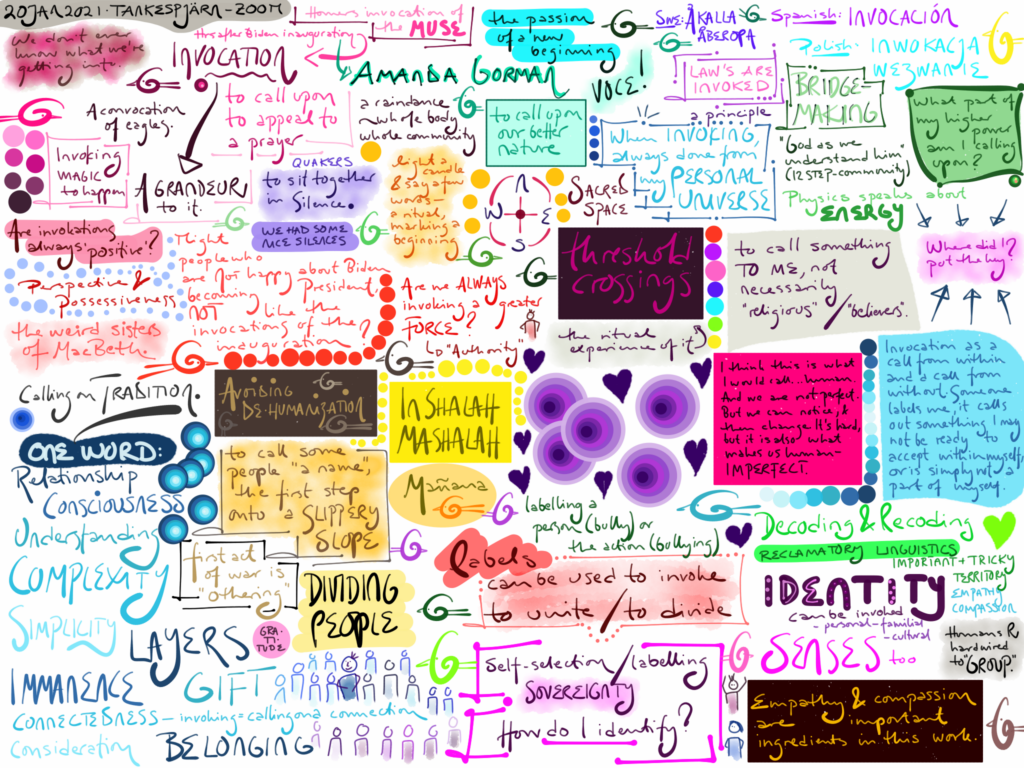 20JAN2021·TANKESPJÄRN-ZOOM
We don't ever
know what we're
getting into.
this after Biden inauguration
INVOCATION
Homers invocation of
the MUSE
AMANDA GORMAN
the passion
of a new
beginning
VOCE!
SWE: ÅKALLA
ÅBEROPA
Spanish: INVOCACIÓN
Polish: INWOKACJA
WEZWANIE
LAW'S ARE
INVOKED
a principle
BRIDGE=
MAKING
What part of
my higher
power
am I calling
upon?
A convocation
of eagles.
to call upon
to appeal to
a prayer
a raindance
~ whole body
whole community
to call upon
our better
nature
When INVOKING,
always done from
my PERSONAL
UNIVERSE
"God as we
understand him"
(12 STEP-community)
Physics speaks about
ENERGY
Invoking
MAGIC
to happen
A GRANDEUR
to it.
QUAKERS
to sit together
in Silence.
WE HAD SOME
NICE SILENCES
light a
candle
& say a few
words—
a ritual,
marking a
beginning
N
W E
S
SACRED
SPACE
Are invocations
always "positive"?
Perspective &
Possessiveness
the weird sisters
of MacBeth.
Might
people who
are not happy about Biden
becoming President
NOT like the
invocations of the
inauguration?
Are we ALWAYS
invoking a greater
FORCE?
↳ "Authority"
threshold
crossings
the ritual
experience of it
to call something
TO ME, not
necessarily
"religious"/"believers".
Where did I?
put the key?
Calling on TRADITION.
AVOIDING
DE-HUMANISATION
INSHALAH
MASHALAH
Mañana
I think this is what
I would call... human.
And we are not perfect.
But we can notice, &
then change. It's hard,
but it is also what
makes us human—
IMPERFECT.
Invocation as a
call from within
and a call from
without. Someone
labels me, it calls
out something I may
not be ready to
accept within myself,
or is simply not a
part of myself.
ONE WORD:
Relationship
CONSCIOUSNESS
Understanding
COMPLEXITY
SIMPLICITY
LAYERS
GRA-
TI-
TUDE
IMMANENCE
GIFT
CONNECTEDNESS — invoking = calling on a connection
Consideration
BELONGING
to call some
people "a name",
the first step
onto a SLIPPERY
SLOPE
first act
of war is
"othering"
DIVIDING
PEOPLE
labelling a
person (bully) or
the action (bullying)
labels
can be used to invoke
to unite/to divide
Self-selection/labelling
SOVEREIGNTY
How do I identify?
Decoding & Recoding
RECLAMATORY LINGUISTICS
IMPORTANT + TRICKY
TERRITORY
EMPATHY
COMPASSION
IDENTITY
can be invoked
- personal-familial
-cultural
SENSES too
Humans R
hardwired
to "GROUP."
Empathy & compassion
are important
ingredients in this work.